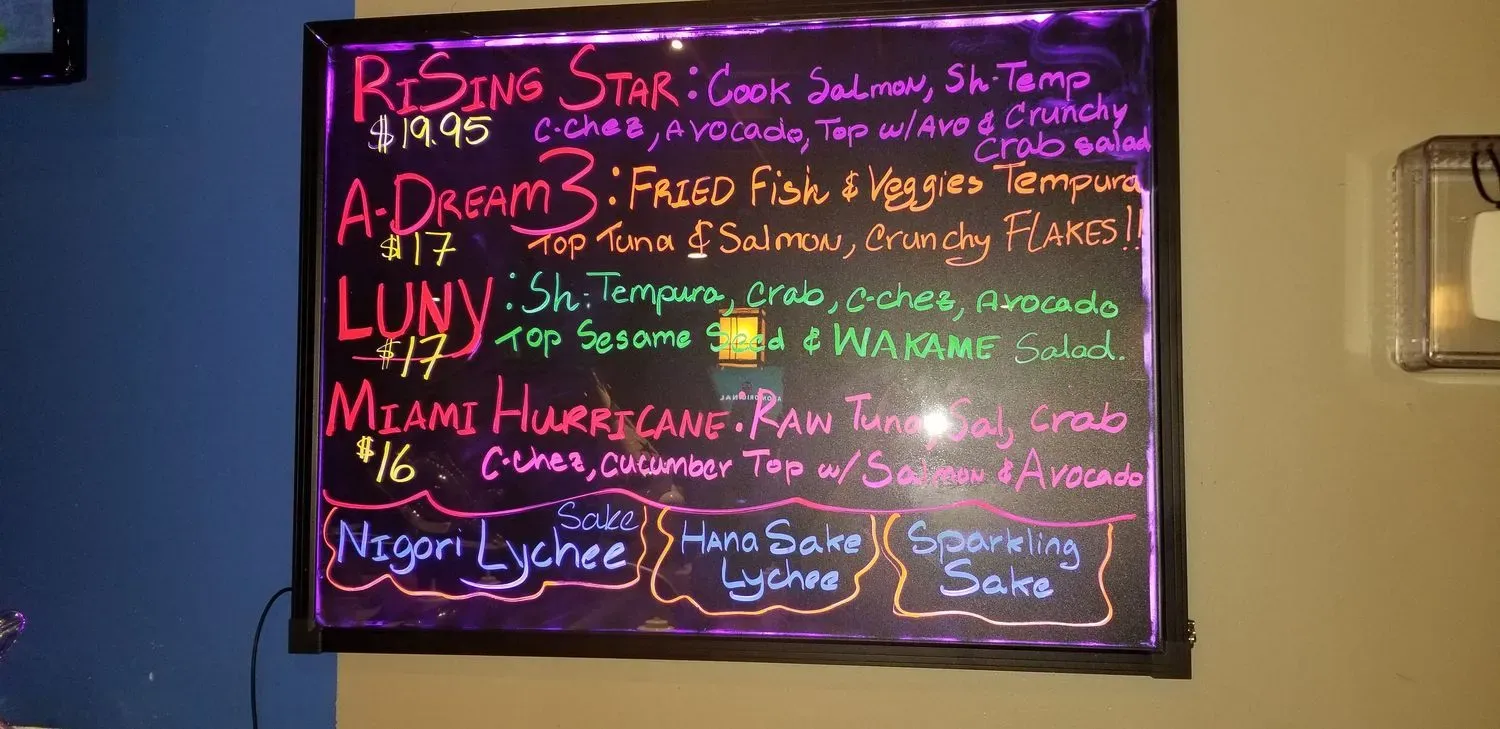 RiSing STAR: Cook Salmon, Sh-Temp
$19.95 C-chez, Avocado, Top w/Avo & Crunchy
Crab salad
A-DREAM3: FRIED Fish & Veggies Tempura
$17 Top Tuna & Salmon, Crunchy FLAKES!!
LUNY: Sh-Tempura, Crab, C-chez, Avocado
$17 Top Sesame Seed & WAKAME Salad.
MIAMI HURRICANE. RAW Tuna, Sal, Crab
$16 C-chez, cucumber Top w/ Salmon & Avocado
Nigori Lychee Sake
Hana Sake
Lychee
Sparkling
Sake